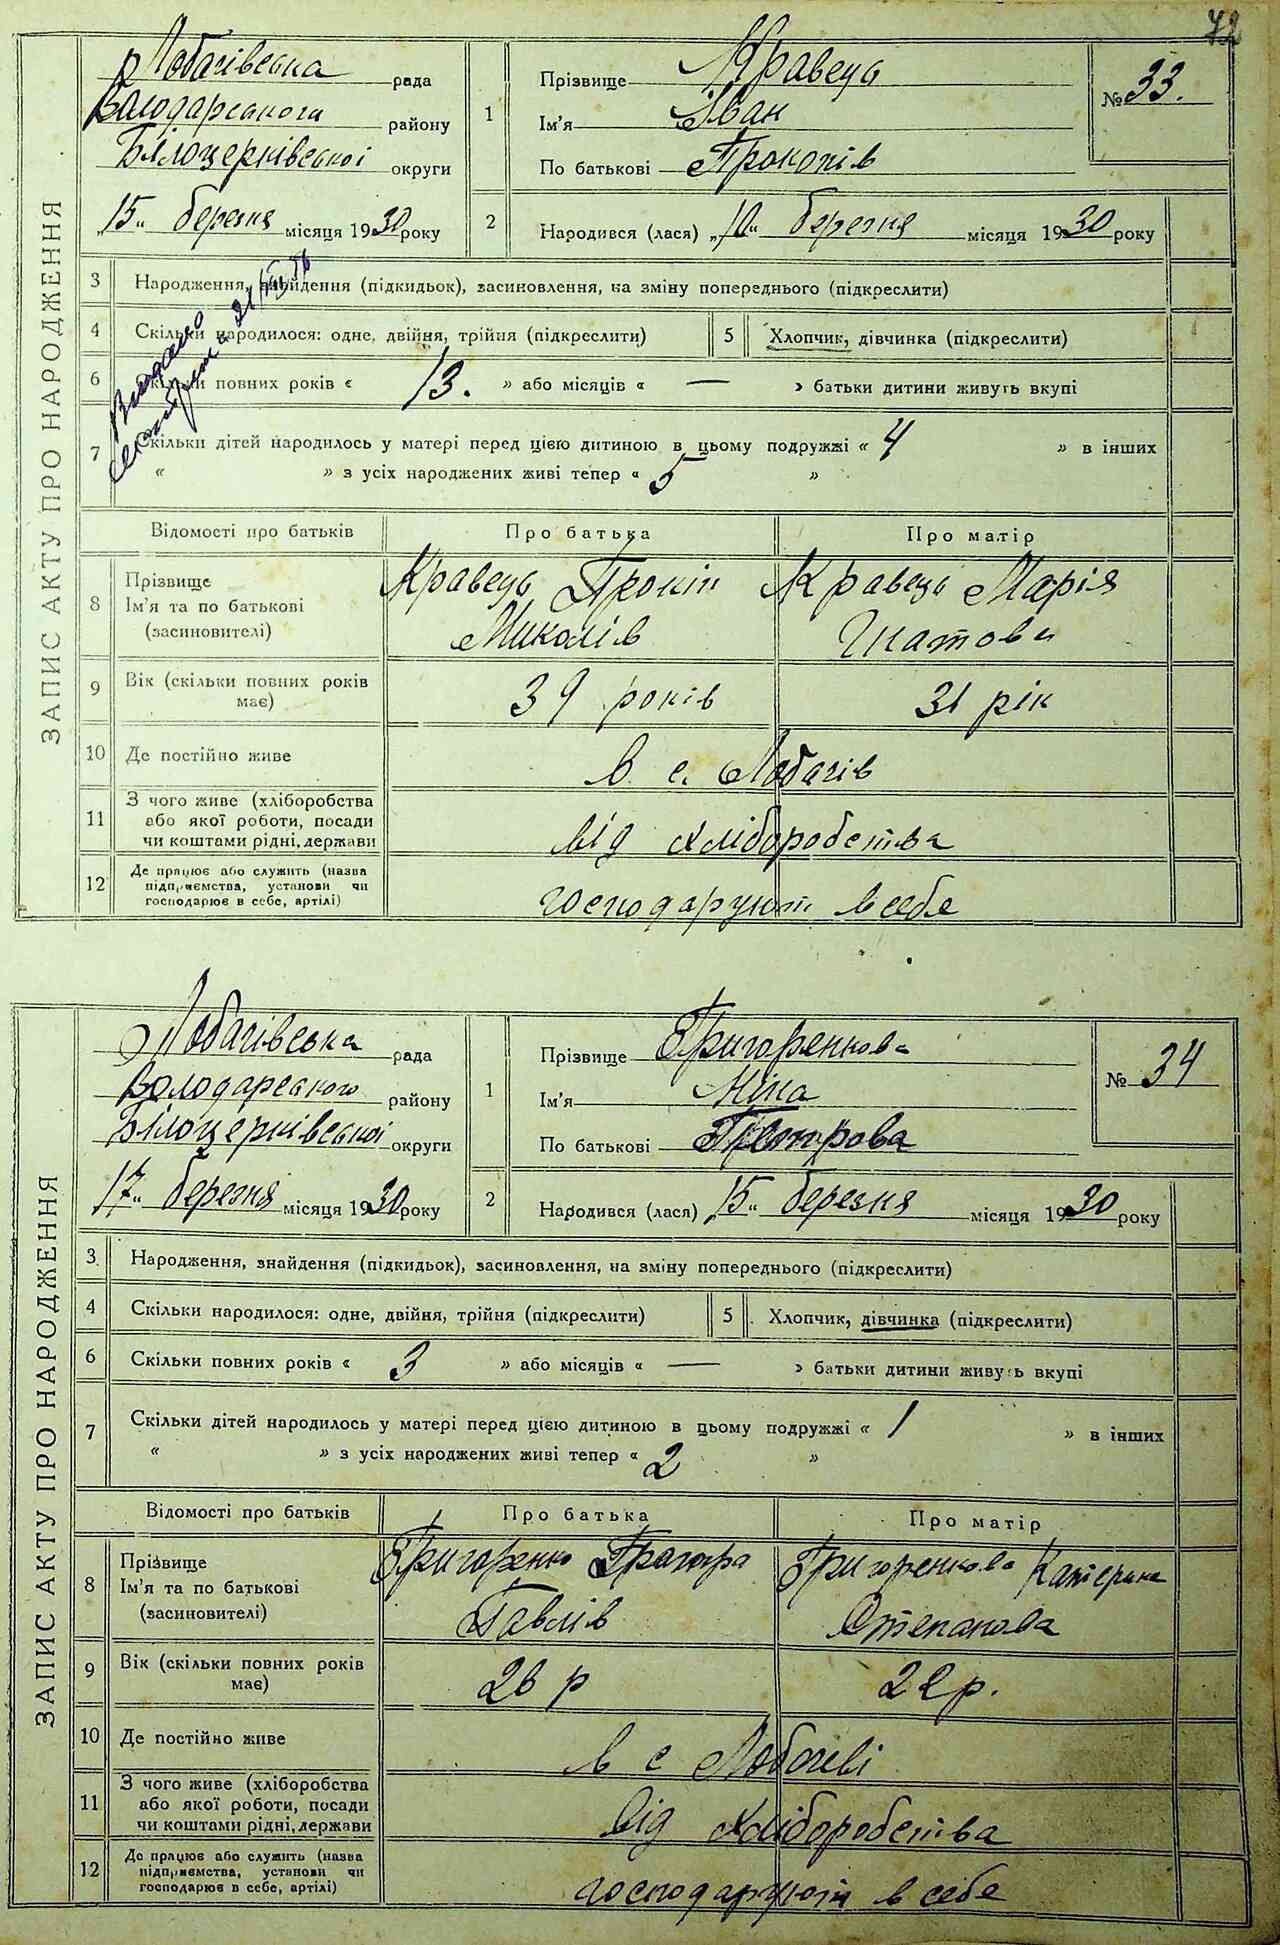 72
ЗАПИС АКТУ ПРО НАРОДЖЕННЯ
Лобачівська рада
Володарського району
Білоцерківської округи
„15“ березня місяця 1930 року
1 Прізвище Кравець
Ім'я Іван
По батькові Прокопів
№ 33.
2 Народився (лася) „10“ березня місяця 1930 року
3 Народження, знайдення (підкидьок), засиновлення, на зміну попереднього (підкреслити)
4 Скільки народилося: одне, двійня, трійня (підкреслити)
5 Хлопчик, дівчинка (підкреслити)
6 Скільки повних років « 13. » або місяців « — » батьки дитини живуть вкупі
7 Скільки дітей народилось у матері перед цією дитиною в цьому подружжі « 4 » в інших
« » з усіх народжених живі тепер « 5 »
Видано
Відомості про батьків Про батька Про матір
8 Прізвище
Ім'я та по батькові
(засиновителі)
Кравець Прокіп
Миколів
Кравець Марія
9 Вік (скільки повних років
має)
39 років
31 рік
10 Де постійно живе
в с. Лобачів
11 З чого живе (хліборобства
або якої роботи, посади
чи коштами рідні, держави
від хліборобства
12 Де працює або служить (назва
підприємства, установи чи
господарює в себе, артілі)
господарують в себе
ЗАПИС АКТУ ПРО НАРОДЖЕННЯ
Лобачівська рада
Володарського району
Білоцерківської округи
„17“ березня місяця 1930 року
1 Прізвище Григоренкова
Ім'я Ніна
По батькові
№ 34
2 Народився (лася) „15“ березня місяця 1930 року
3 Народження, знайдення (підкидьок), засиновлення, на зміну попереднього (підкреслити)
4 Скільки народилося: одне, двійня, трійня (підкреслити)
5 Хлопчик, дівчинка (підкреслити)
6 Скільки повних років « 3 » або місяців « — » батьки дитини живуть вкупі
7 Скільки дітей народилось у матері перед цією дитиною в цьому подружжі « 1 » в інших
« » з усіх народжених живі тепер « 2 »
Відомості про батьків Про батька Про матір
8 Прізвище
Ім'я та по батькові
(засиновителі)
Григоренко
Павлів
Григоренкова Катерина
Степанова
9 Вік (скільки повних років
має)
26 р
22 р.
10 Де постійно живе
в с Лобачеві
11 З чого живе (хліборобства
або якої роботи, посади
чи коштами рідні, держави
від хліборобства
12 Де працює або служить (назва
підприємства, установи чи
господарює в себе, артілі)
господарують в себе